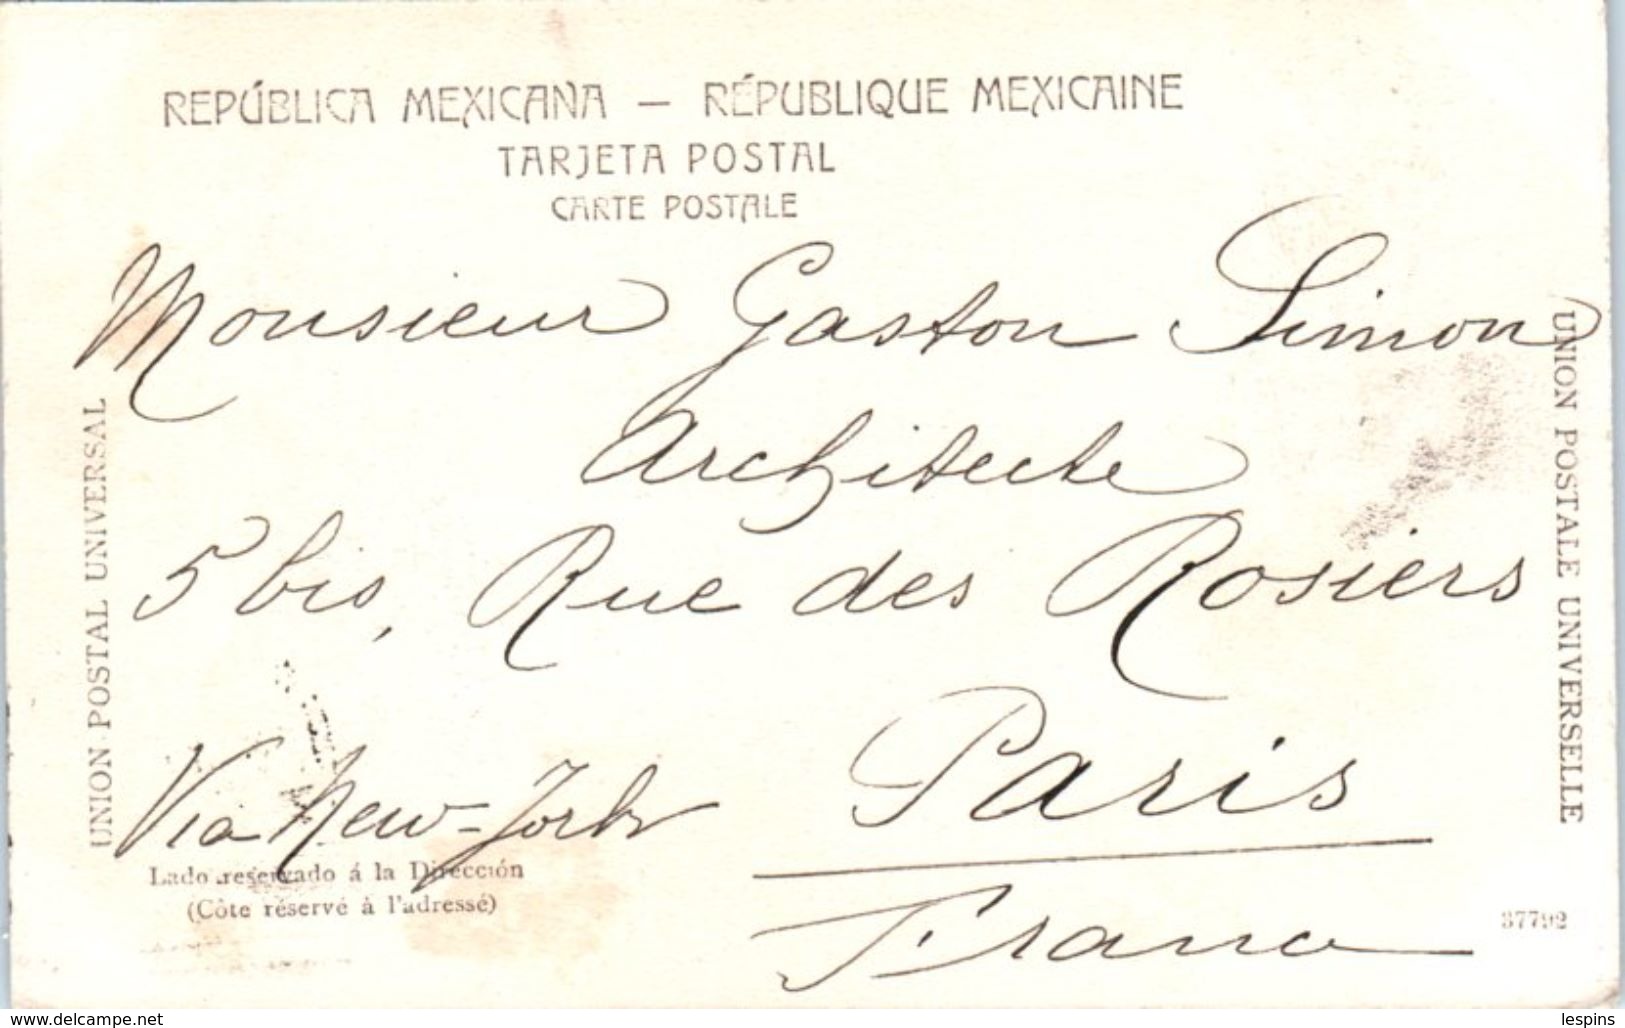 REPÚBLICA MEXICANA — RÉPUBLIQUE MEXICAINE
TARJETA POSTAL
CARTE POSTALE
Monsieur Gaston Simon
Architecte
5 bis, Rue des Rosiers
Paris
Via New-York
France
UNION POSTAL UNIVERSAL
UNION POSTALE UNIVERSELLE
Lado reservado á la Dirección
(Côte réservé à l'adressé)
37792
www.delcampe.net
lespins